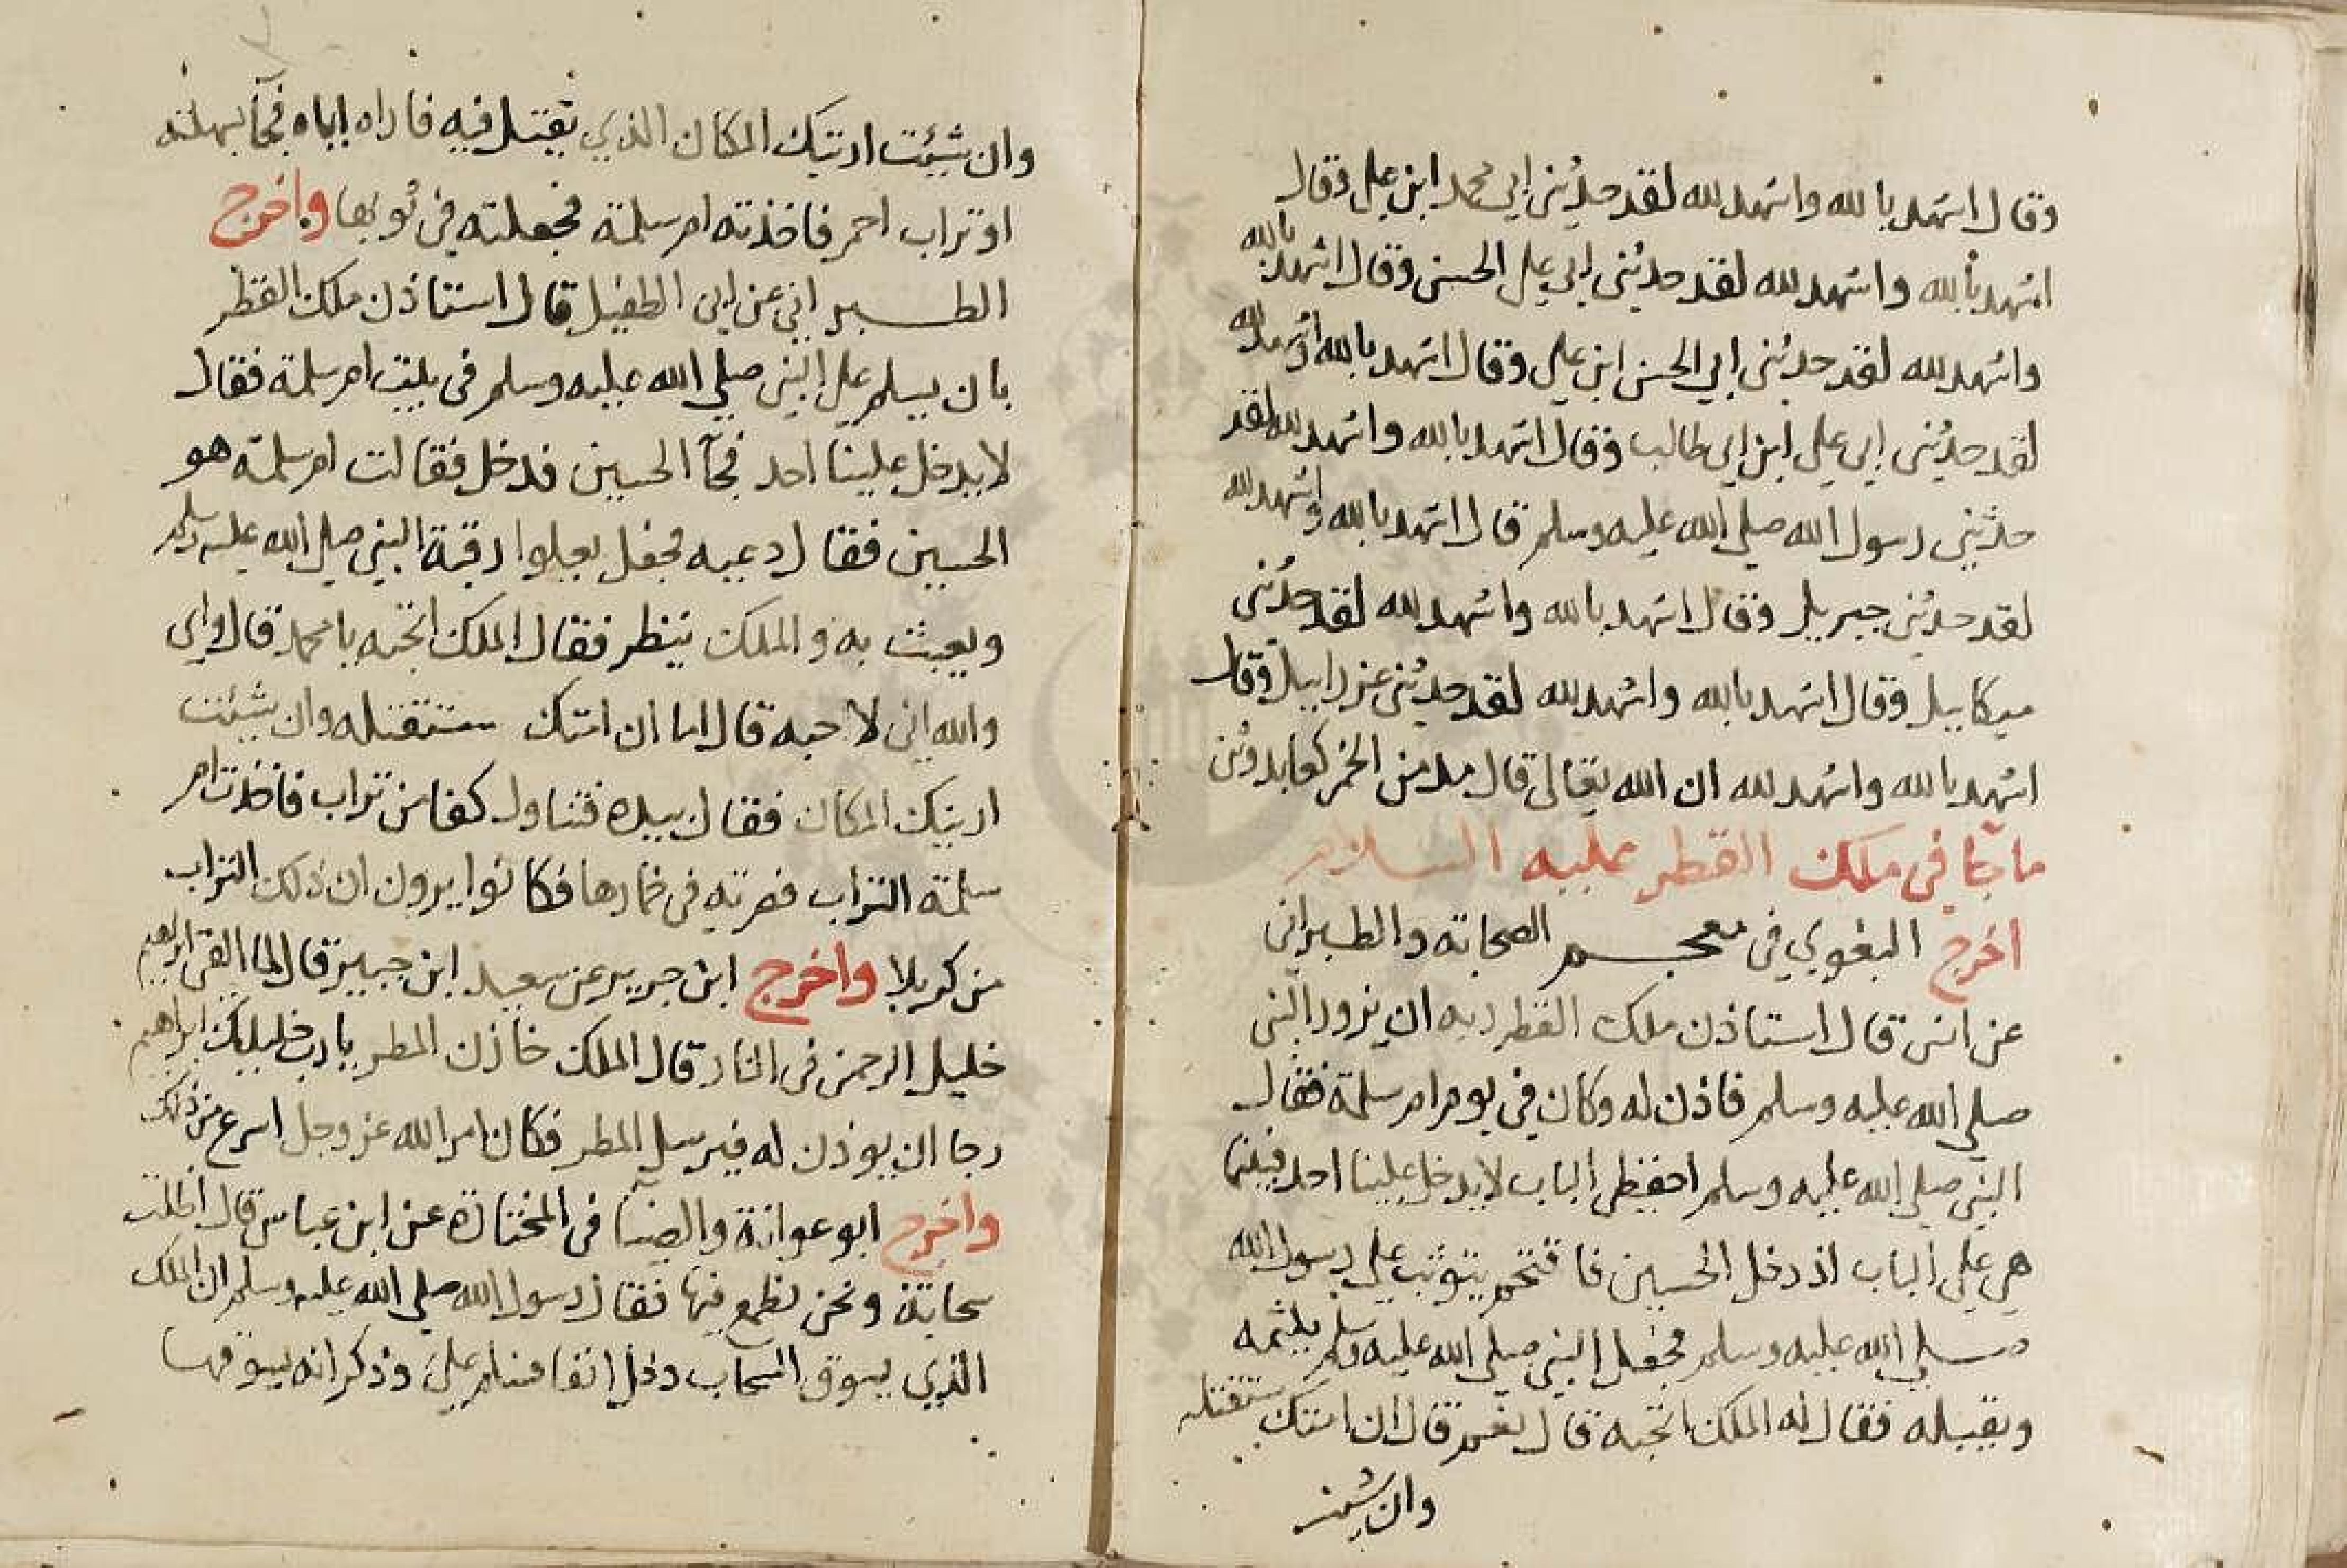 وقال اشهد بالله واشهد لله لقد حدثنى ابي محمد ابن على وقال
اشهد بالله واشهد لله لقد حدثنى ابي علي الحسن وقال اشهد بالله
واشهد لله لقد حدثنى ابي الحسن ابن علي وقال اشهد بالله واشهد لله
لقد حدثنى ابي علي ابن ابي طالب وقال اشهد بالله واشهد لله لقد
حدثنى رسول الله صلى الله عليه وسلم قال اشهد بالله واشهد لله
لقد حدثنى جبريل وقال اشهد بالله واشهد لله لقد حدثنى
ميكاييل وقال اشهد بالله واشهد لله لقد حدثنى عزراييل وقال
اشهد بالله واشهد لله ان الله تعالى قال مدمن الخمر كعابد وثن
ما جآ فى ملك القطر عليه السلام
اخرج البغوي فى معجم الصحابة والطبرانى
عن انس قال استاذن ملك القطر ربه ان يزور النبى
صلى الله عليه وسلم فاذن له وكان فى يوم ام سلمة فقال
النبى صلى الله عليه وسلم احفظى الباب لا يدخل علينا احد فبينما
هى على الباب اذ دخل الحسين فاقتحم يتوثب على رسول الله
صلى الله عليه وسلم فجعل النبى صلى الله عليه وسلم يلثمه
ويقبله فقال له الملك اتحبه قال نعم قال ان امتك ستقتله
وان شيت
وان شيئت اريتك المكان الذي يقتل فيه فاراه اياه فجآ بسهلة
او تراب احمر فاخذته ام سلمة فجعلته فى ثوبها واخرج
الطبرانى عن ابى الطفيل قال استاذن ملك القطر
بان يسلم على النبى صلى الله عليه وسلم فى بيت ام سلمة فقال
لا يدخل علينا احد فجآ الحسين فدخل فقالت ام سلمة هو
الحسين فقال دعيه فجعل يعلوا رقبة النبى صلى الله عليه وسلم
ويعبث به والملك ينظر فقال الملك اتحبه يا محمد قال واى
والله انى لاحبه قال اما ان امتك ستقتله وان شيئت
اريتك المكان فقال بيده فتناول كفا من تراب فاخذت ام
سلمة التراب فصرته فى خمارها فكانوا يرون ان ذلك التراب
من كربلا واخرج ابن جرير عن سعيد ابن جبير قال لما القى ابراهيم
خليل الرحمن فى النار قال الملك خازن المطر يا رب خليلك ابراهيم
رجا ان يوذن له فيرسل المطر فكان امر الله عز وجل اسرع من ذلك
واخرج ابو عوانة والضيآ فى المختارة عن ابن عباس قال اظلت
سحابة ونحن نطمع فيها فقال رسول الله صلى الله عليه وسلم ان الملك
الذي يسوق السحاب دخل انفا فسلم على وذكر انه يسوقها